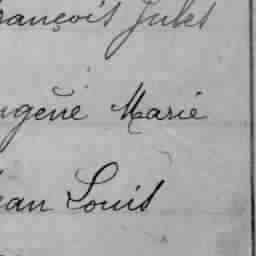 rançois Jules
ugène Marie
ean Louis